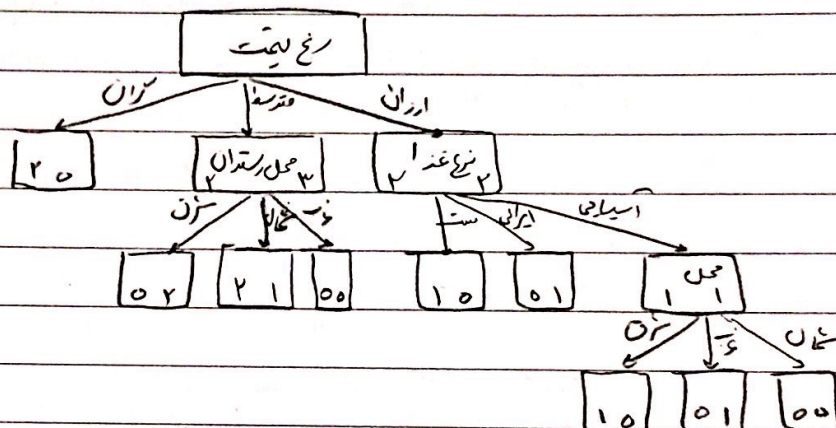 رنج قیمت
گران متوسط ارزان
۲ ۰
محل رستوران
۲ ۳
نوع غذا
۲ ۲
شرق شمال غرب
ست ایرانی آسیایی
۰ ۲
۲ ۱
۰ ۰
۱ ۰
۰ ۱
محل
۱ ۱
شرق غرب شمال
۱ ۰
۰ ۱
۰ ۰